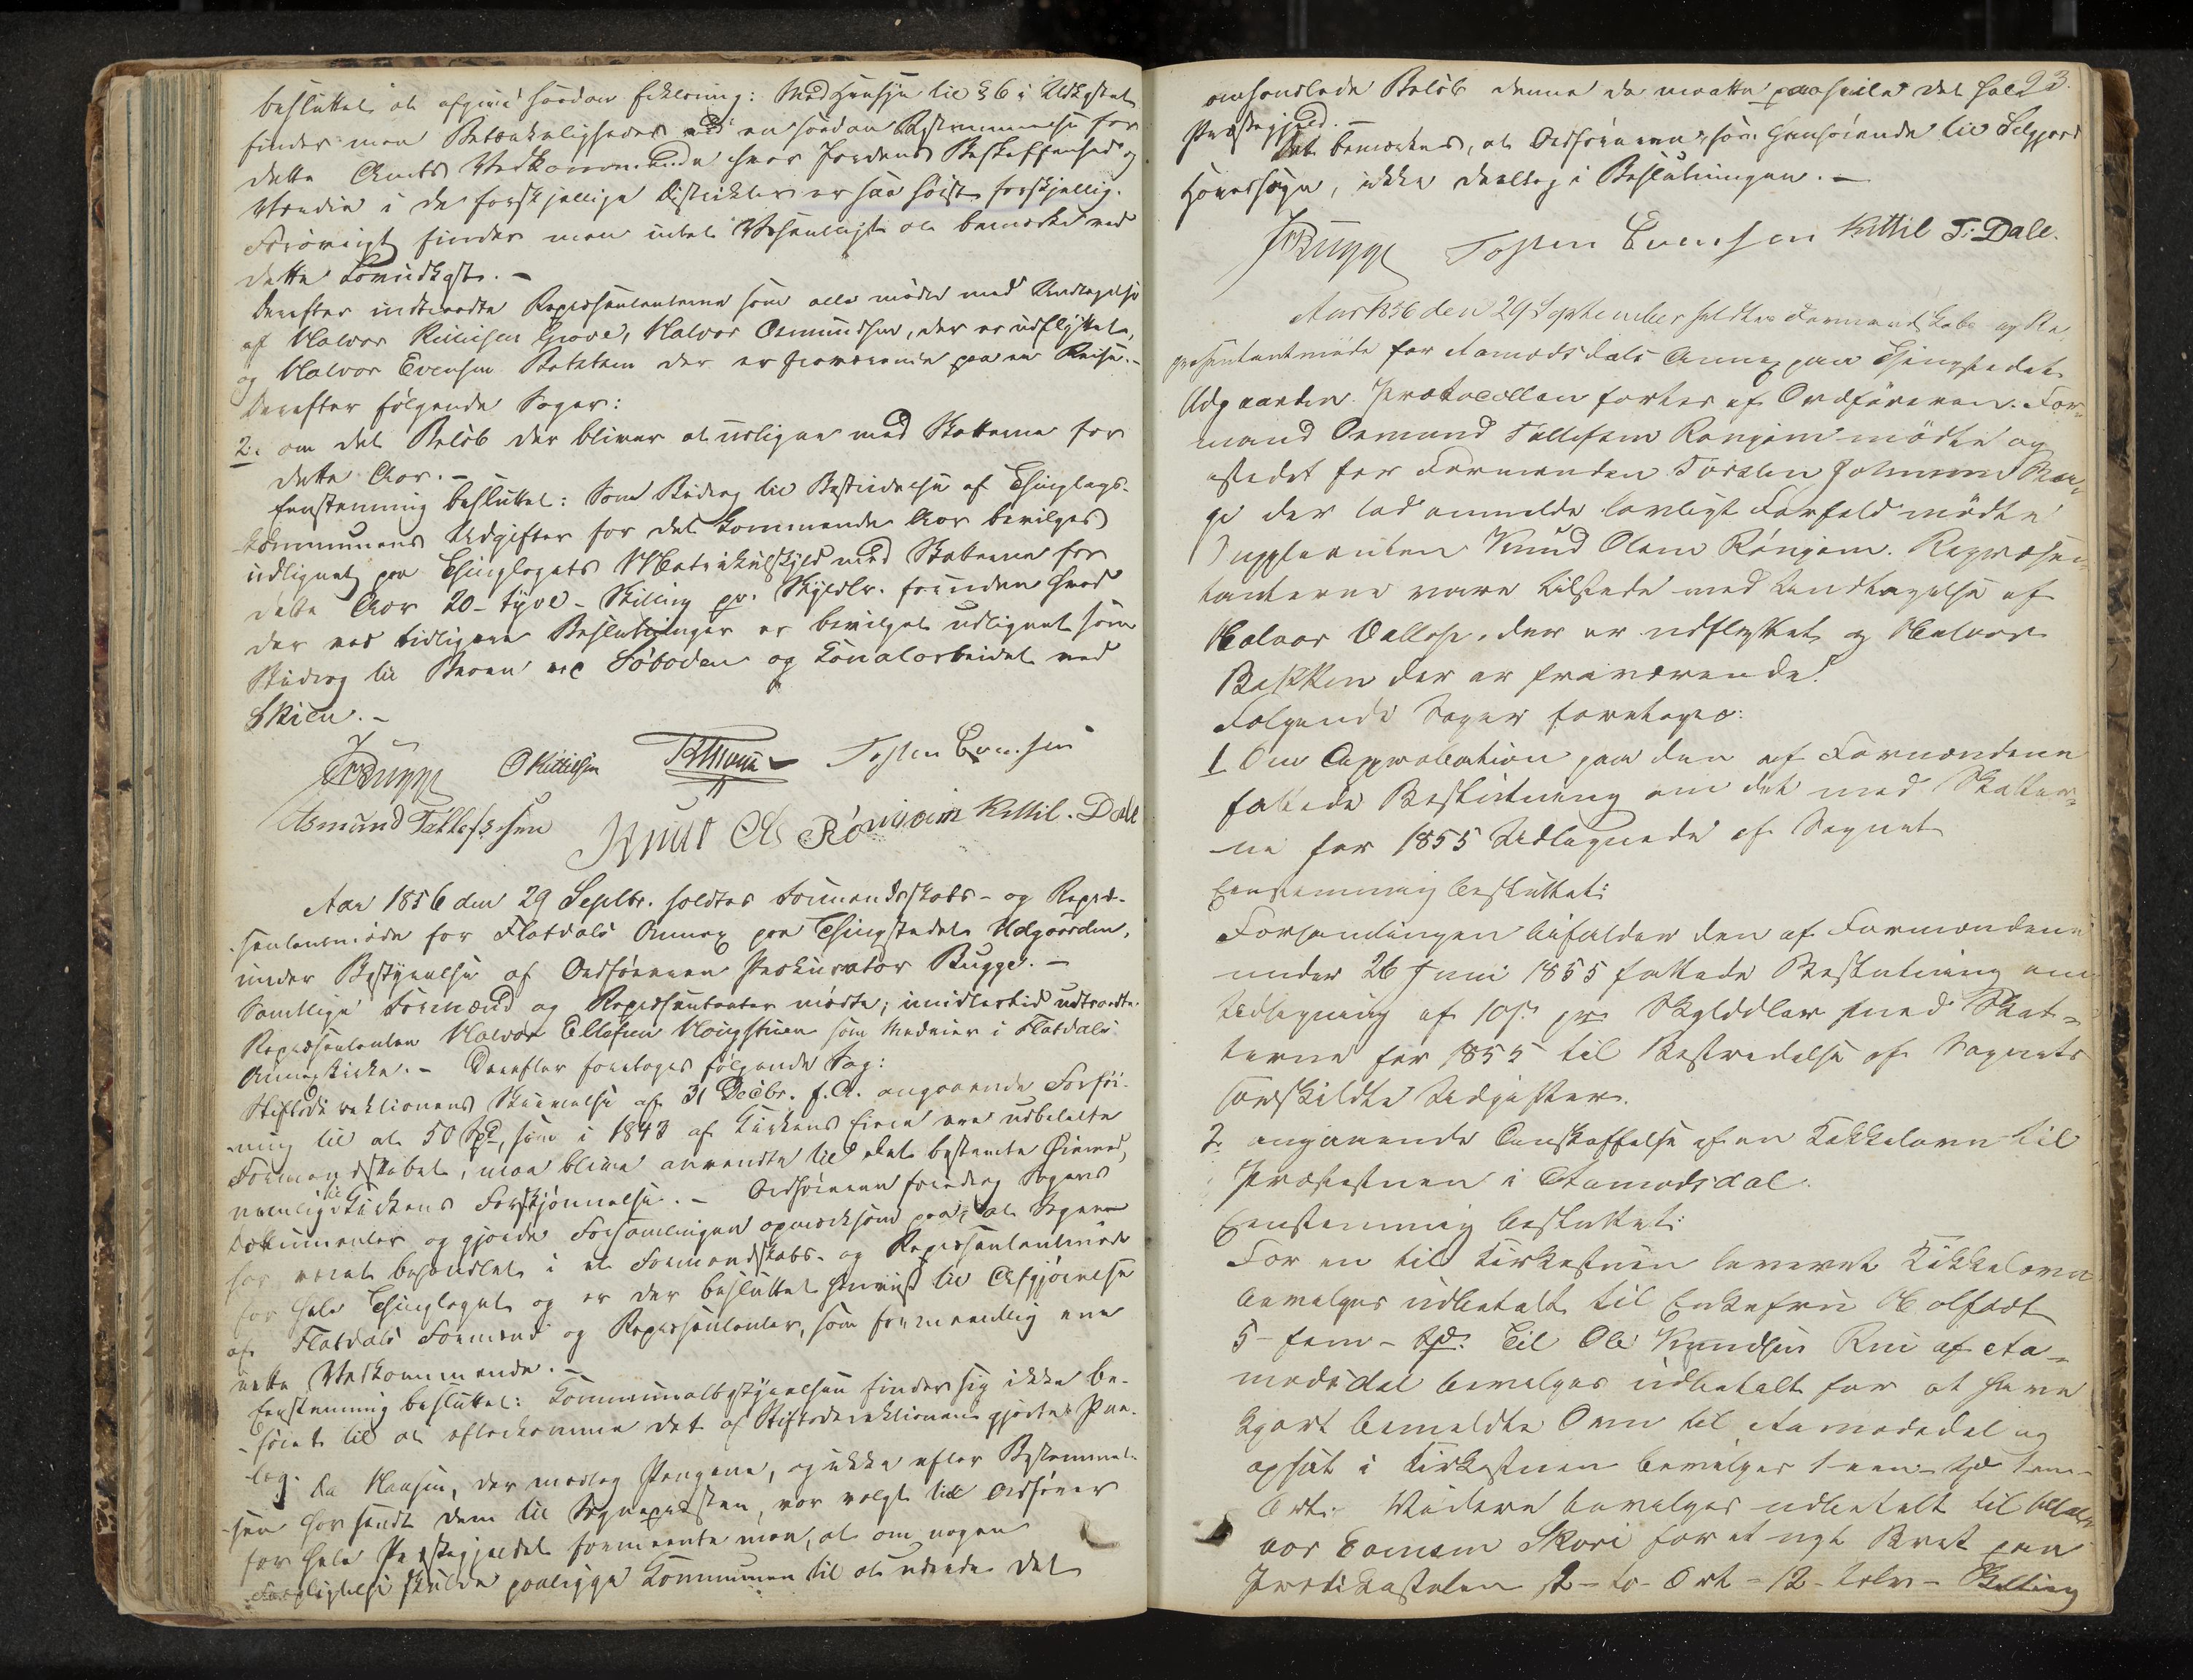 besluttet at afgive saadan Erklæring: Med Hensyn til § 6 i Udkastet
finder man Betænkeligheder ved en saadan Bestemmelse for
dette Amts Vedkommende hvor Jordens Beskaffenhed og
Værdie i de forskjellige Distrikter er saa høist forskjellig.
Forøvrigt finder man intet Væsentligt at bemærke ved
dette Lovudkast. -
Derefter indtraadte Repræsentanterne som alle mødte med Undtagelse
af Halvor Grave, Halvor Osmundsen, der er udflyttet,
og Halvor Evensen der er fraværende paa en Reise. -
Derefter følgende Sager:
2. om det Beløb der bliver at udligne med Skatterne for
dette Aar. -
Eenstemmig besluttet: Som Bidrag til Bestridelse af Thinglags-
kommunens Udgifter for det kommende Aar bevilges
udlignet paa Thinglagets Matrikulskyld med Skatterne for
dette Aar 20 - tyve - Skilling pr. Skylddlr. foruden hvad
der ved tidligere Beslutninger er bevilget udlignet som
Bidrag til Veien ved Søboden og Canalarbeidet ved
Skien. -
JBugge OKittilsen Tosten Evensen
Asmund Tallefsen Knut Ols Rönjom Kittil. Dale
Aar 1856 den 29 Septbr. holdtes Formandskabs- og Repræ-
sentantmøde for Flatdals Annex paa Thingstedet Utgaarden,
under Bestyrelse af Ordføreren Prokurator Bugge. -
Samtlige Formænd og Repræsentanter mødte; imidlertid udtraadte
Repræsentanten Halvor Ellefsen Haugstuen som Medeier i Flatdals
Annexkirke. - Derefter foretoges følgende Sag:
Stiftsdirektionens Skrivelse af 31 Decbr. f. A. angaaende Forføi-
ning til at 50 Spd, som i 1843 af Kirkens Eiere ere udbetalte
Formandskabet, maa blive anvendte til det bestemte Øiemed,
nemlig til Kirkens Forskjønnelse. - Ordføreren foredrog Sagens
Dokumenter og gjorde Forsamlingen opmærksom paa, at Sagen
har været behandlet i et Formandskabs- og Repræsentantmøde
for hele Thinglaget og er der besluttet henviist til Afgjørelse
af Flatdals Formænd og Repræsentanter, som formeentlig ere
rette Vedkommende. -
Eenstemmig besluttet: Communalbestyrelsen finder sig ikke be-
føiet til at efterkomme det af Stiftsdirektionen gjorte Paa-
læg. Da Hansen, der modtog Pengene, og ikke efter Bestemmel-
sen har sendt dem til Sognepræsten, var valgt til Ordfører
for hele Præstegjeldet formeente man, at om nogen
Forpligtelse skulde paaligge Kommunen til at udrede det
93.
omhandlede Beløb denne da maatte paahvile det hele
Præstegjeld. -
Det bemærkes, at Ordføreren, som henhørende til Seljord
Hovedsogn, ikke deeltog i Beslutningen. -
JBugge Tosten Evensen Kittil T: Dale.
Aar 1856 den 29 September holdtes Formandskabs og Re
præsentantmøde for Aamodsdals Annex paa Thingstedet
Utgaarden. Protocollen førtes af Ordføreren. For-
mand Osmund Tallefsen Rønjom mødte og
istedet for Formanden Torsten Johnsen
der lod anmelde lovligt Forfald mødte
Suppleanten Knud Olsen Rönjom. Repræsen-
tanterne vare tilstede med Undtagelse af
Halvor der er udflyttet og Halvor
Bakken der er fraværende.
Følgende Sager foretoges:
1 Om Approbation paa den af Formændene
fattede Beslutning om det med Skatter-
ne for 1855 Udlignede af Sognet
Eenstemmig besluttet:
Forsamlingen bifalder den af Formændene
under 26 Juni 1855 fattede Beslutning om
Udligning af 10 s. pr. Skylddler med Skat-
terne for 1855 til Bestridelse af Sognets
særskildte Udgifter.
2. angaaende Anskaffelse af en Kakkelovn til
Præstestuen i Aamodsdal.
Eenstemmig besluttet:
For en til Kirkestuen leveret Kakkelovn
bevilges udbetalt til Enkefru
5 - fem - Spd. Til Ole Knudsen Rui af Aa-
modsdal bevilges udbetalt for at have
kjørt bemeldte Ovn til Aamodsdal og
opsat i Kirkestuen bevilges 1 - een - Spd 1 een -
Ort. Videre bevilges udbetalt til Hal-
vor Skori for et nyt Bret paa
Prædikestolen 2 - to - Ort - 12 - tolv - Skilling